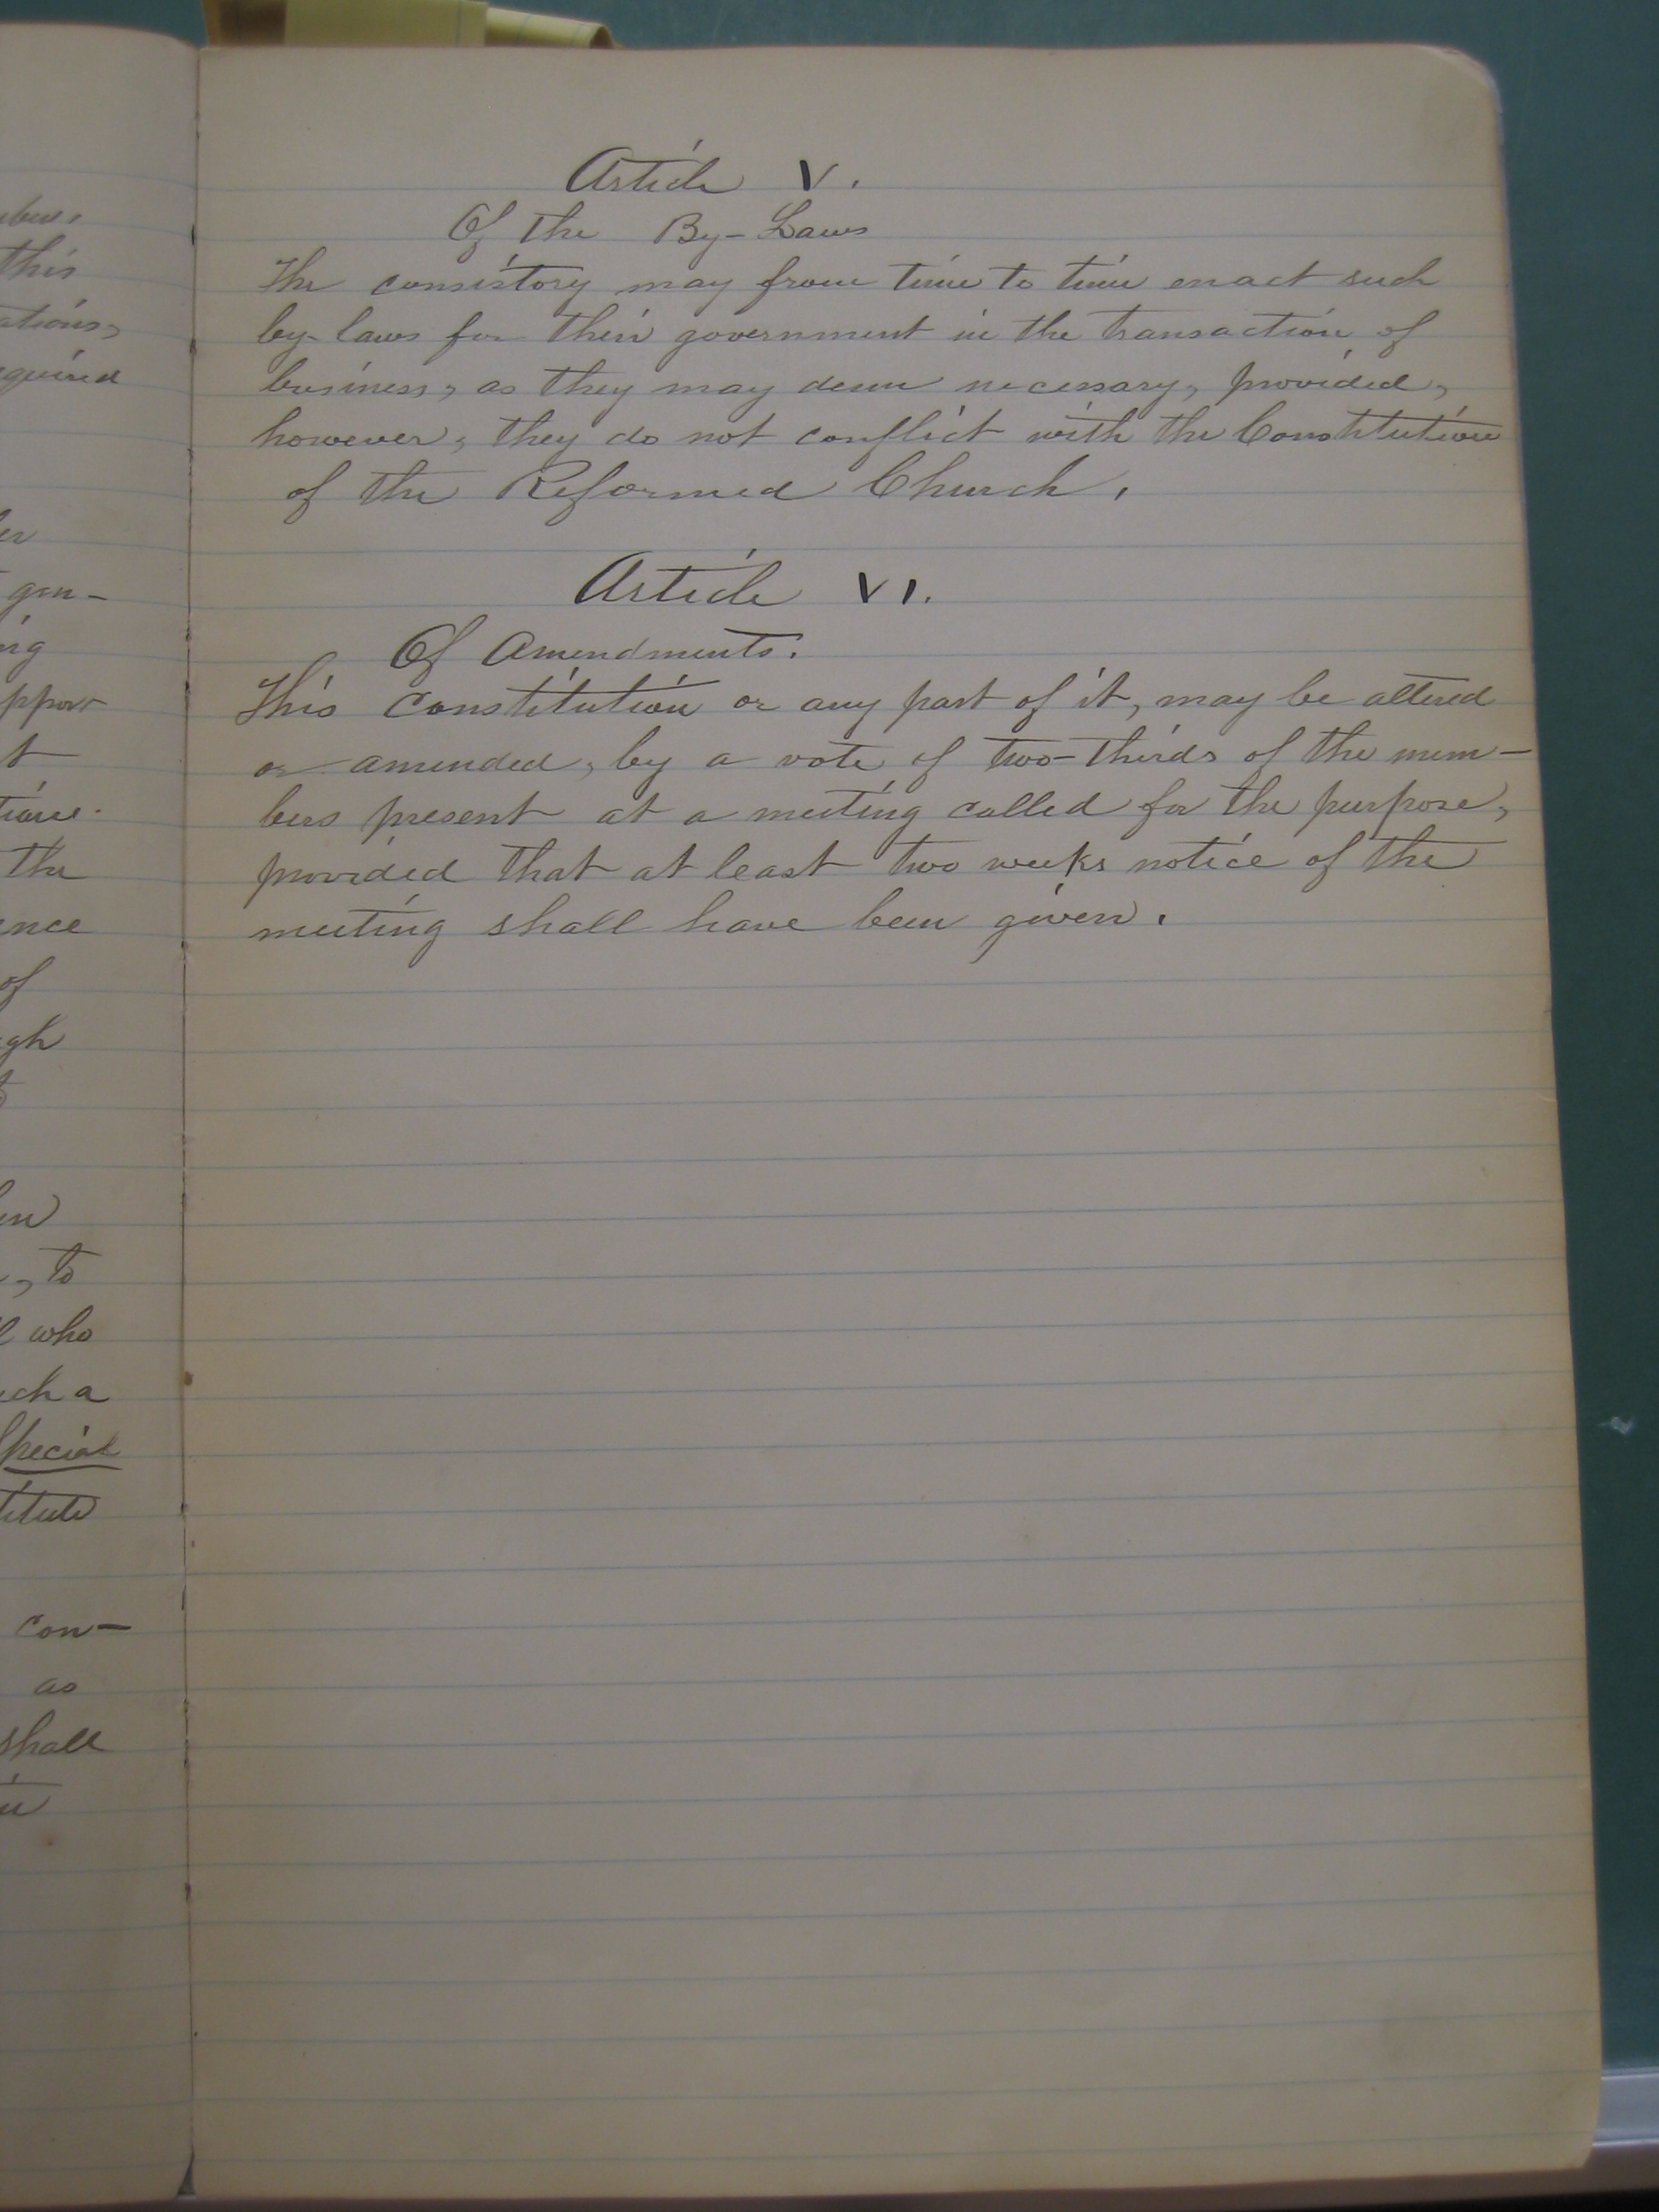 bers.
this
ations,
equired
er
gen-
ing
ppor
t
tions.
the
ence
of
ugh
en
, to
l who
uch a
Special
titute
con-
as
shall
in
Article V.
Of the By-Laws
The consistory may from time to time enact such
by-laws for their government in the transaction of
business, as they may deem necessary, provided,
however, they do not conflict with the Constitution
of the Reformed Church.
Article VI.
Of Amendments.
This Constitution or any part of it, may be altered
or amended, by a vote of two-thirds of the mem-
bers present at a meeting called for the purpose,
provided that at least two weeks notice of the
meeting shall have been given.